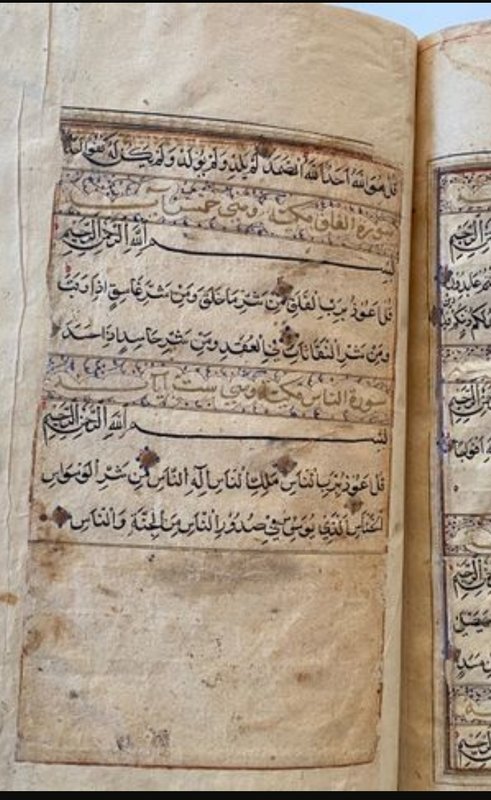 قل هو الله احد الله الصمد لم يلد ولم يولد ولم يكن له كفوا احد
سورة الفلق مكية وهي خمس آيات
بسم الله الرحمن الرحيم
قل اعوذ برب الفلق من شر ما خلق ومن شر غاسق اذا وقب
ومن شر النفاثات في العقد ومن شر حاسد اذا حسد
سورة الناس مكية وهي ست آيات
بسم الله الرحمن الرحيم
قل اعوذ برب الناس ملك الناس اله الناس من شر الوسواس
الخناس الذي يوسوس في صدور الناس من الجنة والناس